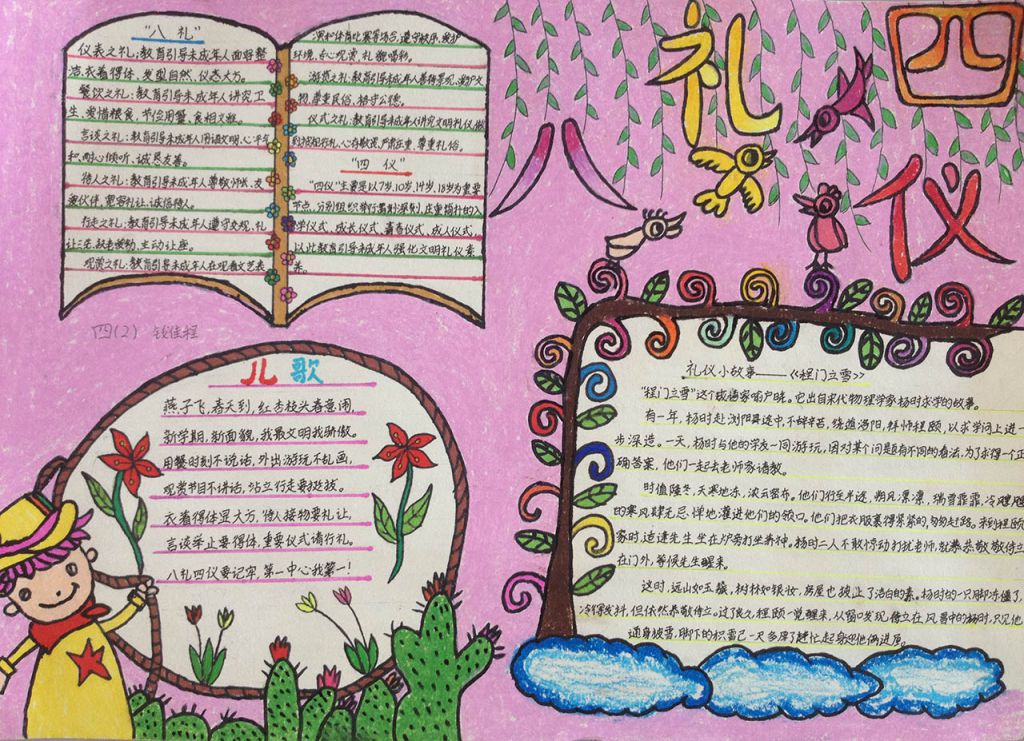 八礼四仪
“八 礼”
仪表之礼:教育引导未成年人面容整
洁,衣着得体,发型自然,仪态大方。
餐饮之礼:教育引导未成年人讲究卫
生,爱惜粮食,节俭用餐,食相文雅。
言谈之礼:教育引导未成年人用语文明,心平气
和,耐心倾听,诚恳友善。
待人之礼:教育引导未成年人尊敬师长,友
爱伙伴,宽容礼让,诚信待人。
行走之礼:教育引导未成年人遵守交规,礼
让三先,扶老助幼,主动让座。
观赏之礼:教育引导未成年人在观看文艺表
演和体育比赛等场合,遵守秩序,爱护
环境,专心观赏,礼貌喝彩。
游览之礼:教育引导未成年人善待景观,爱护文
物,尊重民俗,恪守公德。
仪式之礼:教育引导未成年人讲究文明礼仪,做
到按规行礼,心存敬畏,严肃庄重,尊重礼俗。
“四 仪”
“四仪”主要是以7岁,10岁,14岁,18岁为重要
节点,分别组织举行寓意深刻,庄重简朴的入
学仪式,成长仪式,青春仪式,成人仪式,
以此教育引导未成年人强化文明礼仪素
养。
四(2) 钱佳程
儿 歌
燕子飞,春天到,红杏枝头春意闹,
新学期,新面貌,我最文明我骄傲。
用餐时刻不说话,外出游玩不乱画,
观赏节目不讲话,站立行走要挺拔。
衣着得体显大方,待人接物要礼让,
言谈举止要得体,重要仪式请行礼。
八礼四仪要记牢,第一中心我第一!
礼仪小故事——《程门立雪》
“程门立雪”这个成语家喻户晓。它出自宋代物理学家杨时求学的故事。
有一年,杨时赴浏阳县途中,不辞辛苦,绕道洛阳,拜师程颐,以求学问上进一
步深造。一天,杨时与他的学友一同游玩,因对某个问题有不同的看法,为了求得一个正
确答案,他们一起去老师家请教。
时值隆冬,天寒地冻,浓云密布。他们行至半途,朔风凛凛,瑞雪霏霏,冷飕飕
的寒风肆无忌惮地灌进他们的领口。他们把衣服裹得紧紧的,匆匆赶路。来到程颐
家时,适逢先生坐在炉旁打坐养神。杨时二人不敢惊动打扰老师,就恭恭敬敬侍立
在门外,等候先生醒来。
这时,远山如玉簇,树林如银妆,房屋也披上了洁白的素。杨时的一只脚冻僵了,
冷得发抖,但依然恭敬侍立。过了良久,程颐一觉醒来,从窗口发现侍立在风雪中的杨时,只见他
通身披雪,脚下的积雪已一